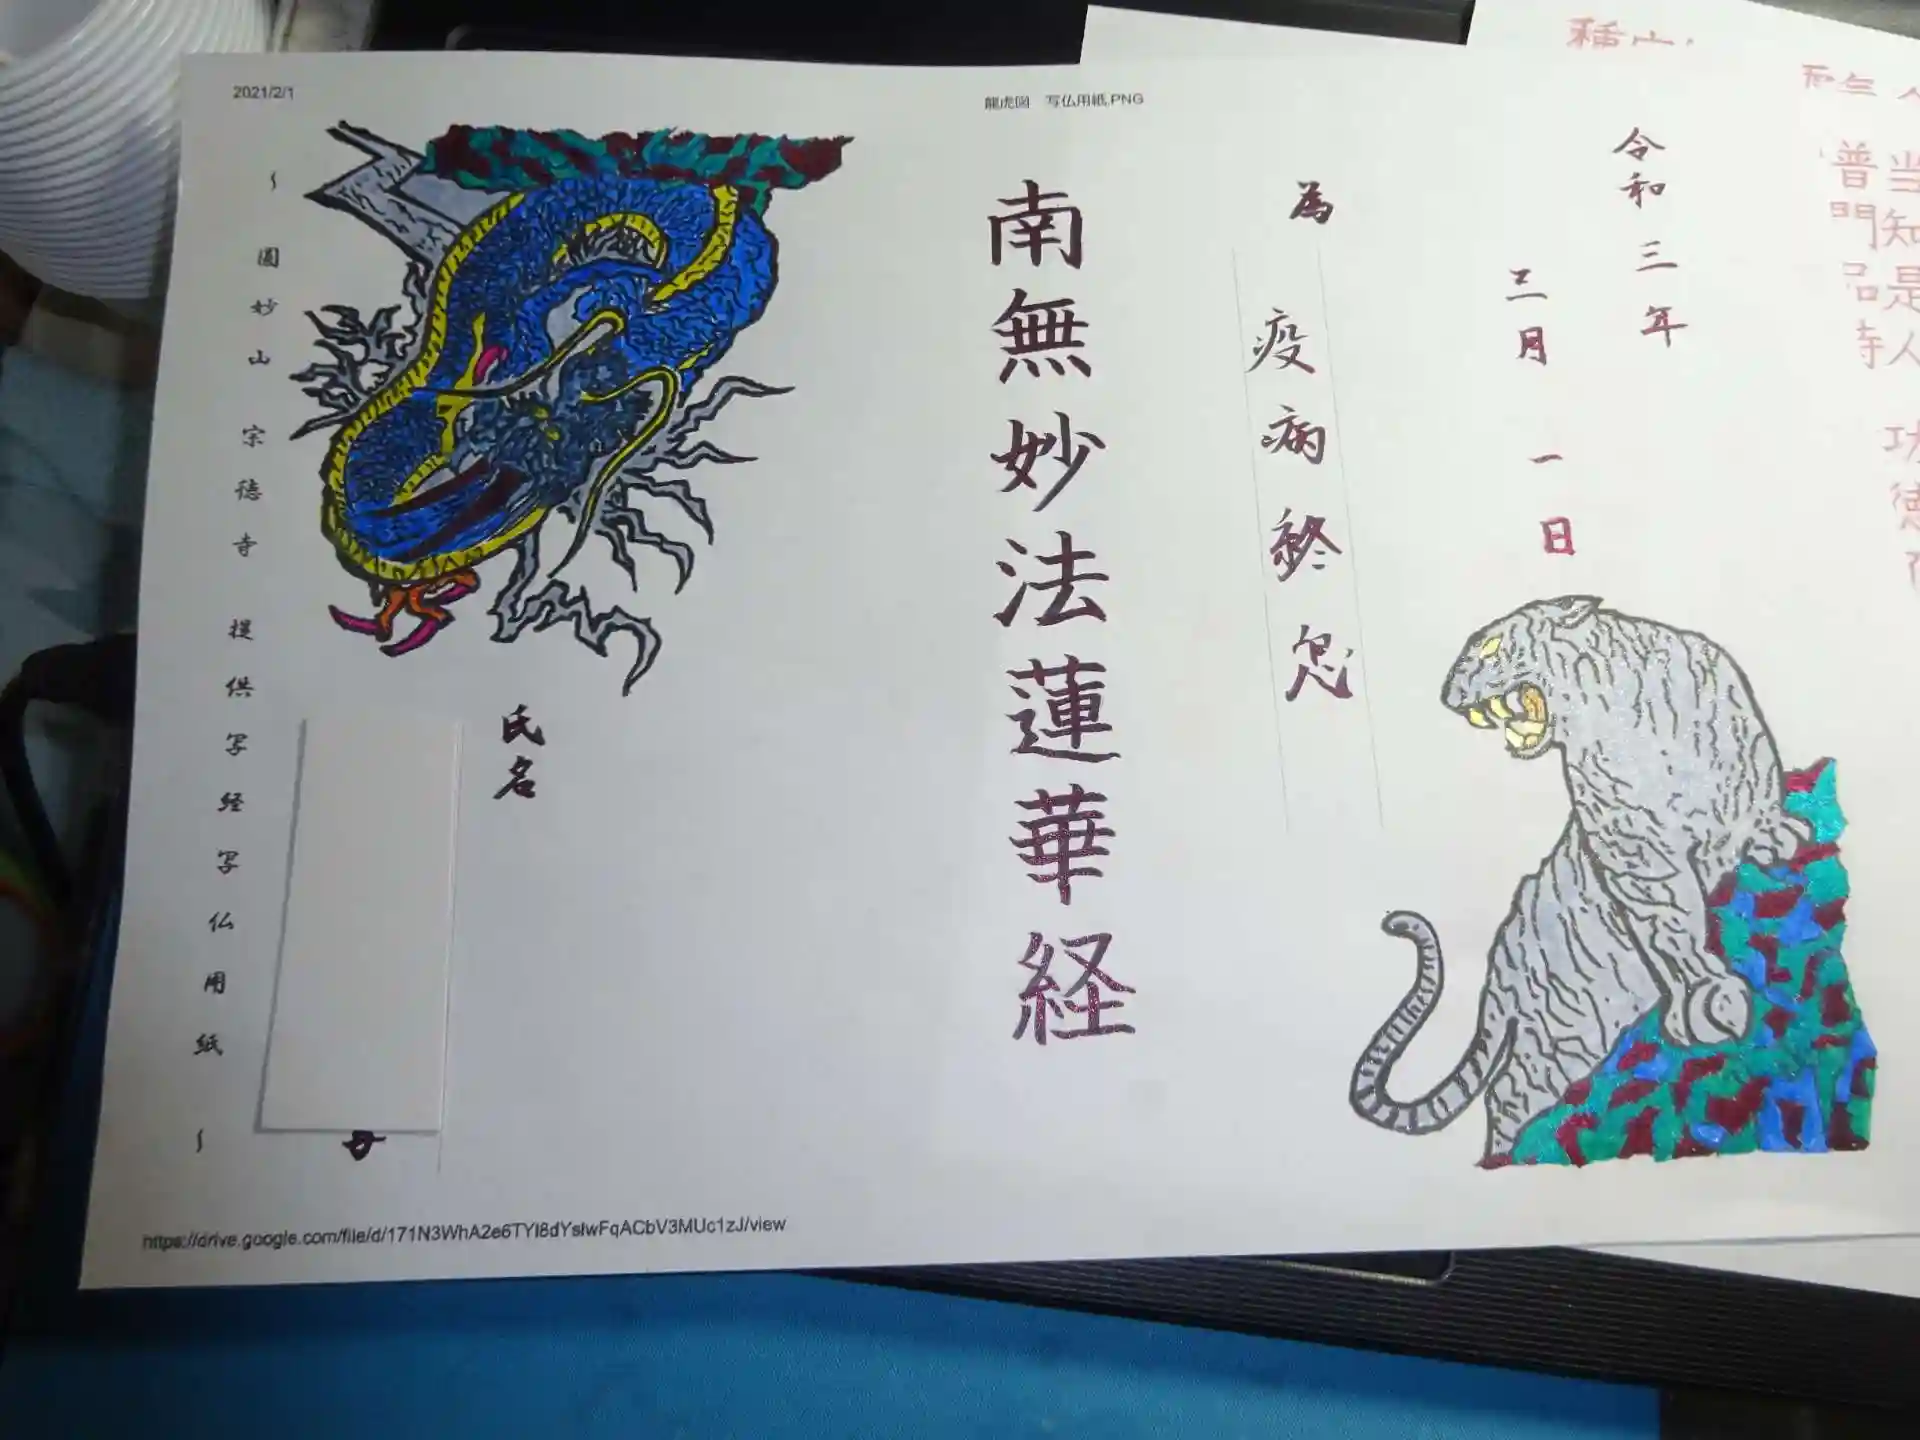 2021/2/1
龍虎図 写仏用紙.PNG
令和三年
三月一日
為
疫病終息
南無妙法蓮華経
氏名
~圓妙山 宗徳寺 提供写経写仏用紙~
当知是人功徳
普門品時